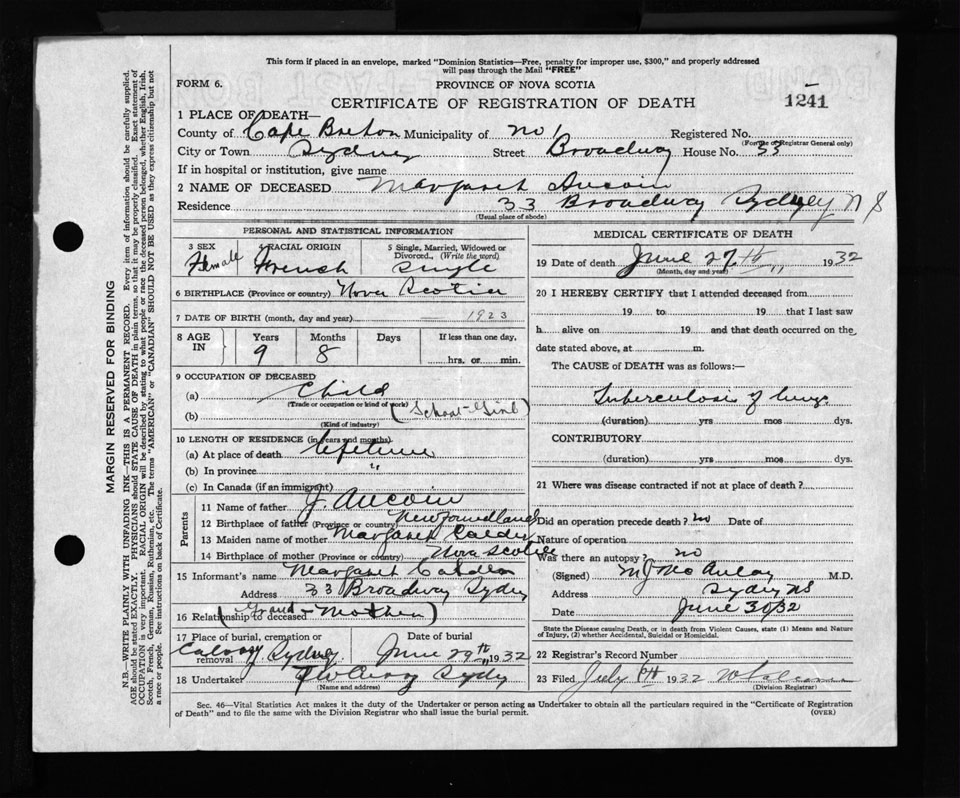 This form if placed in an envelope, marked "Dominion Statistics—Free, penalty for improper use, $300," and properly addressed
will pass through the Mail "FREE"
FORM 6.
PROVINCE OF NOVA SCOTIA
CERTIFICATE OF REGISTRATION OF DEATH
1241
1 PLACE OF DEATH—
County of Cape Breton Municipality of No 1 Registered No.
(For use of Registrar General only)
City or Town Sydney Street Broadway House No. 33
If in hospital or institution, give name
2 NAME OF DECEASED Margaret Aucoin
Residence 33 Broadway Sydney N S
(Usual place of abode)
PERSONAL AND STATISTICAL INFORMATION
3 SEX Female
4 RACIAL ORIGIN French
5 Single, Married, Widowed or Divorced, (Write the word) Single
6 BIRTHPLACE (Province or country) Nova Scotia
7 DATE OF BIRTH (month, day and year) 1923
8 AGE IN Years 9 Months 8 Days If less than one day. hrs. or min.
9 OCCUPATION OF DECEASED
(a) Child
(Trade or occupation or kind of work)
(b) (School-Girl)
(Kind of industry)
10 LENGTH OF RESIDENCE (in years and months)
(a) At place of death lifetime
(b) In province "
(c) In Canada (if an immigrant)
Parents
11 Name of father J. Aucoin
12 Birthplace of father (Province or country) Newfoundland
13 Maiden name of mother Margaret
14 Birthplace of mother (Province or country) Nova Scotia
15 Informant's name Margaret
Address 33 Broadway Sydney
16 Relationship to deceased (Grand-Mother)
17 Place of burial, cremation or removal Calvary Sydney
Date of burial June 29th 1932
18 Undertaker Sydney
(Name and address)
MEDICAL CERTIFICATE OF DEATH
19 Date of death June 27th 1932
(Month, day and year)
20 I HEREBY CERTIFY that I attended deceased from
19 to 19 that I last saw
h alive on 19 and that death occurred on the
date stated above, at m.
The CAUSE of DEATH was as follows:—
Tuberculosis of lungs
(duration) yrs mos dys.
CONTRIBUTORY
(duration) yrs mos dys.
21 Where was disease contracted if not at place of death?
Did an operation precede death? no Date of
Nature of operation
Was there an autopsy? no
(Signed) M.D.
Address Sydney NS
Date June 30/32
State the Disease causing Death, or in death from Violent Causes, state (1) Means and Nature of Injury, (2) whether Accidental, Suicidal or Homicidal.
22 Registrar's Record Number
23 Filed July 6th 1932
(Division Registrar)
Sec. 46—Vital Statistics Act makes it the duty of the Undertaker or person acting as Undertaker to obtain all the particulars required in the "Certificate of Registration
of Death" and to file the same with the Division Registrar who shall issue the burial permit.
(OVER)
MARGIN RESERVED FOR BINDING
N.B.—WRITE PLAINLY WITH UNFADING INK—THIS IS A PERMANENT RECORD. Every item of information should be carefully supplied.
AGE should be stated EXACTLY. PHYSICIANS should STATE CAUSE OF DEATH in plain terms, so that it may be properly classified. Exact statement of
OCCUPATION is very important. RACIAL ORIGIN will be described by stating to what people or race the deceased person belonged, whether English, Irish,
Scotch, French, German, Russian, Ruthenian, etc. The terms "AMERICAN" or "CANADIAN" SHOULD NOT BE USED as they express citizenship but not
a race or people. See instructions on back of Certificate.